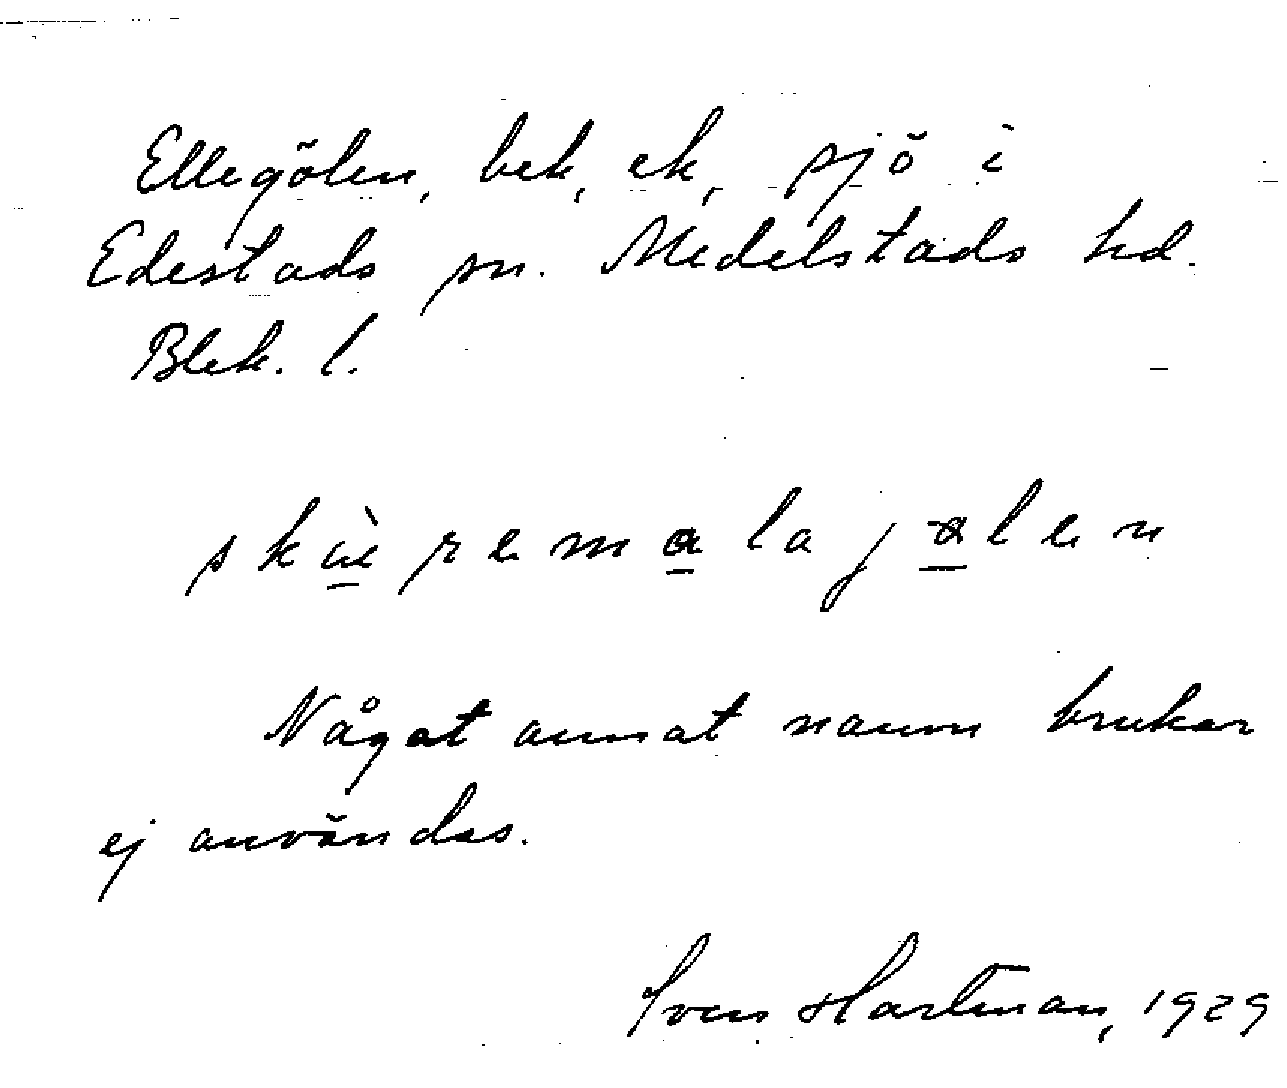 Ellegölen, bek, ek, sjö i
Edestads sn. Medelstads hd.
Blek. l.
Något annat namn brukar
ej användas.
Sven Hartman, 1929